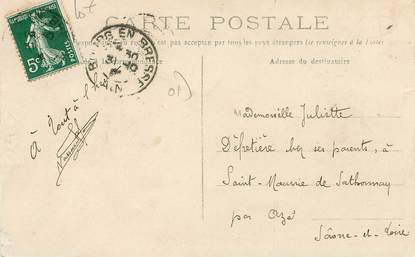 CARTE POSTALE
pas acceptée par tous les pays étrangers (se renseigner à la Poste)
Adresse du destinataire
5c
POSTES
BOURG EN BRESSE
AIN
À tout à l'h
Mademoiselle Juliette
chez ses parents, à
Saint-Maurice de Sathonnay
par Azé
Saône-et-Loire